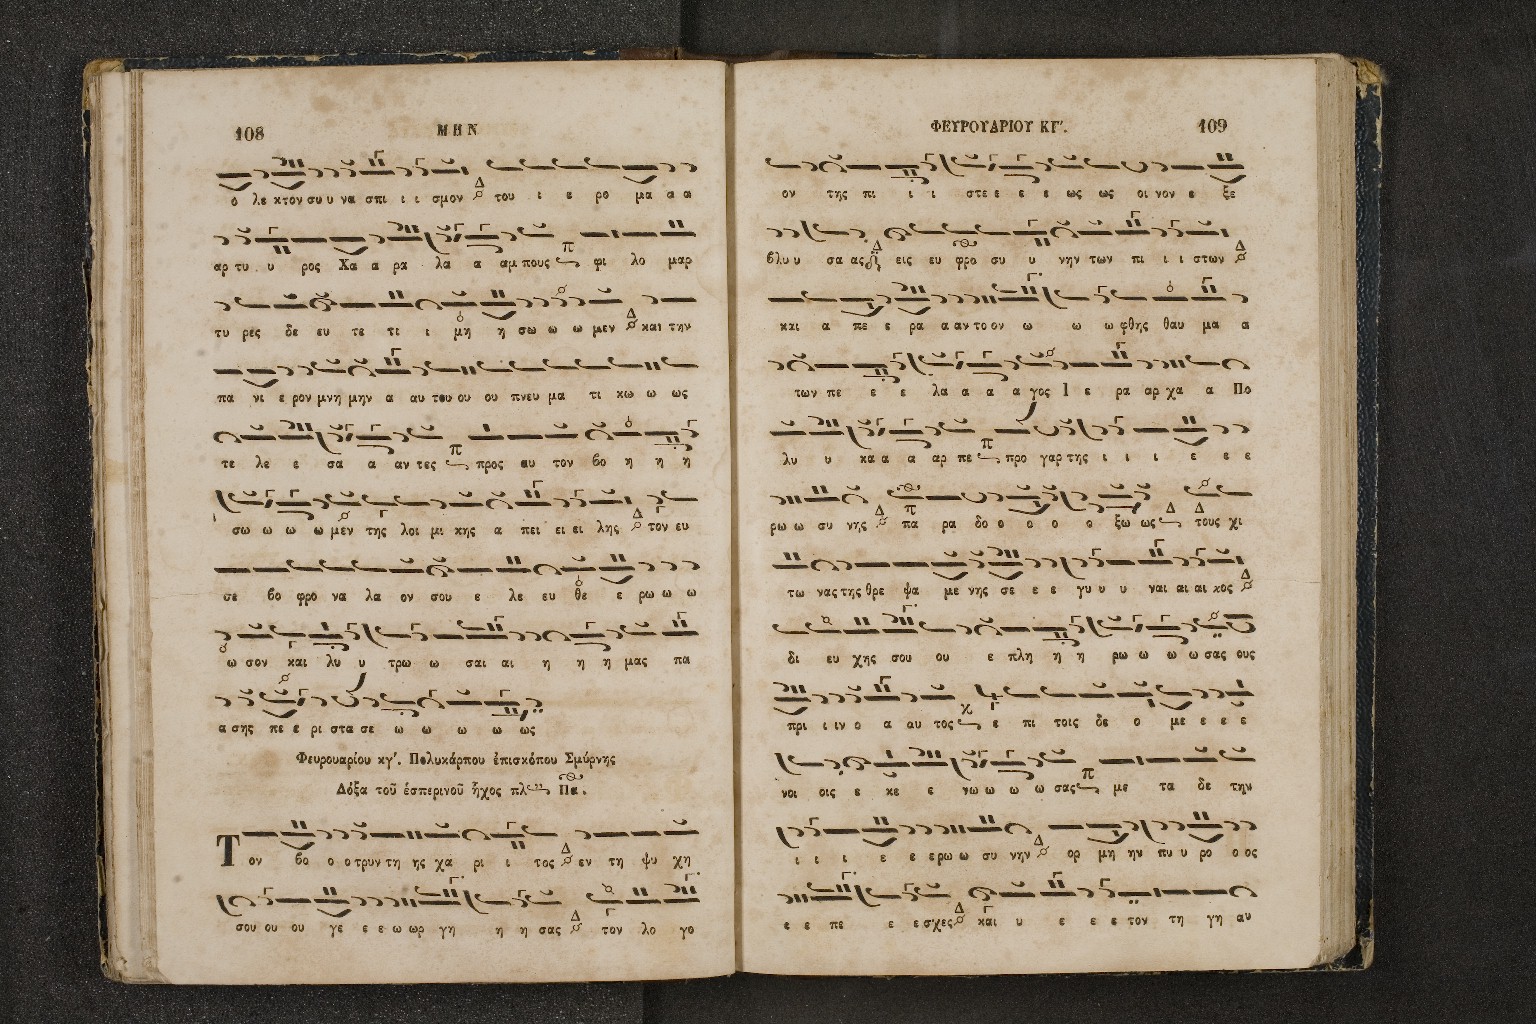 108 ΜΗΝ
ο λε κτον συ υ να σπι ι ι σμον του ι ε ρο μα α α
αρ τυ υ ρος Χα α ρα λα α αμ πους φι λο μαρ
τυ ρες δε ευ τε τι ι μη η σω ω ω μεν και την
πα νι ε ρον μνη μην α αυ του ου ου πνευ μα τι κω ω ως
τε λε ε σα α αν τες προς αυ τον βο η η η
σω ω ω ω μεν της λοι μι κης α πει ει ει λης τον ευ
σε βο φρο να λα ον σου ε λε ευ θε ε ρω ω ω
ω σον και λυ υ τρω ω σαι αι η η η μας πα
α σης πε ε ρι στα σε ω ω ω ω ως
Φευρουαρίου κγʹ. Πολυκάρπου ἐπισκόπου Σμύρνης
Δόξα τοῦ ἑσπερινοῦ ἦχος πλ Πα.
Τον βο ο ο τρυν τη ης χα ρι ι τος εν τη ψυ χη
σου ου ου γε ε ε ω ωρ γη η η σας τον λο γο
ΦΕΥΡΟΥΑΡΙΟΥ ΚΓʹ. 109
ον της πι ι ι στε ε ε ε ως ως οι νον ε ξε
βλυ υ σα ας εις ευ φρο συ υ νην των πι ι ι στων
και α πε ε ρα α αν το ον ω ω ω φθης θαυ μα α
των πε ε ε λα α α α γος Ι ε ρα αρ χα α Πο
λυ υ κα α α αρ πε προ γαρ της ι ι ι ε ε ε
ρω ω συ νης πα ρα δο ο ο ο ο ξω ως τους χι
τω νας της θρε ψα με νης σε ε ε γυ υ υ ναι αι αι κος
δι ευ χης σου ου ε πλη η η ρω ω ω ω σας ους
πρι ι ιν ο α αυ τος ε πι τοις δε ο με ε ε ε
νοι οις ε κε ε νω ω ω ω σας με τα δε την
ι ι ι ε ε ε ρω ω συ νην ορ μη ην πυ υ ρο ο ος
ε ε πε ε ε σχες και υ ε ε ε τον τη γη αυ